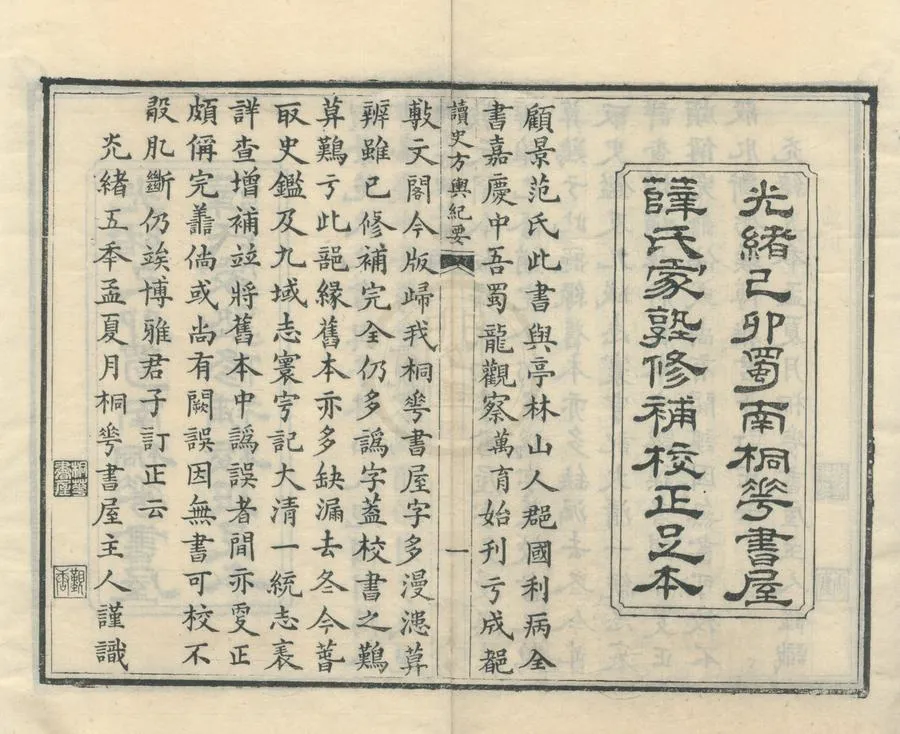 光緒己卯蜀南桐華書屋
薛氏家塾修補校正足本
顧景范氏此書與亭林山人郡國利病全
書嘉慶中吾蜀龍觀察萬育始刊亏成都
讀史方輿紀要
一
敷文閣今版歸我桐華書屋字多漫漶莫
辨雖已修補完全仍多譌字葢校書之難
莫難亏此緣舊本亦多缺漏去冬今春
取史鑑及九域志寰宇記大清一統志表
詳查增補並將舊本中譌誤者閒亦更正
頗偁完善倘或尚有闕誤因無書可校不
敢肊斷仍竢博雅君子訂正云
光緒五年孟夏月桐華書屋主人謹識
桐華書屋